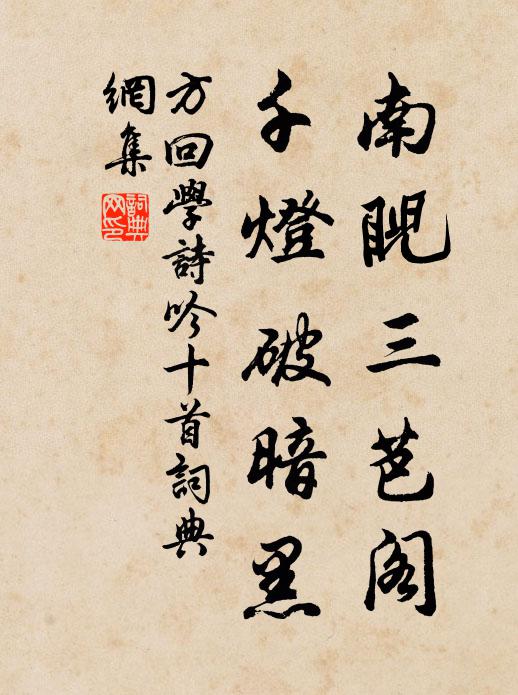 南睨三芭阁
千燈破暗黑
方回學詩吟十首詞典
網集
詞典网印